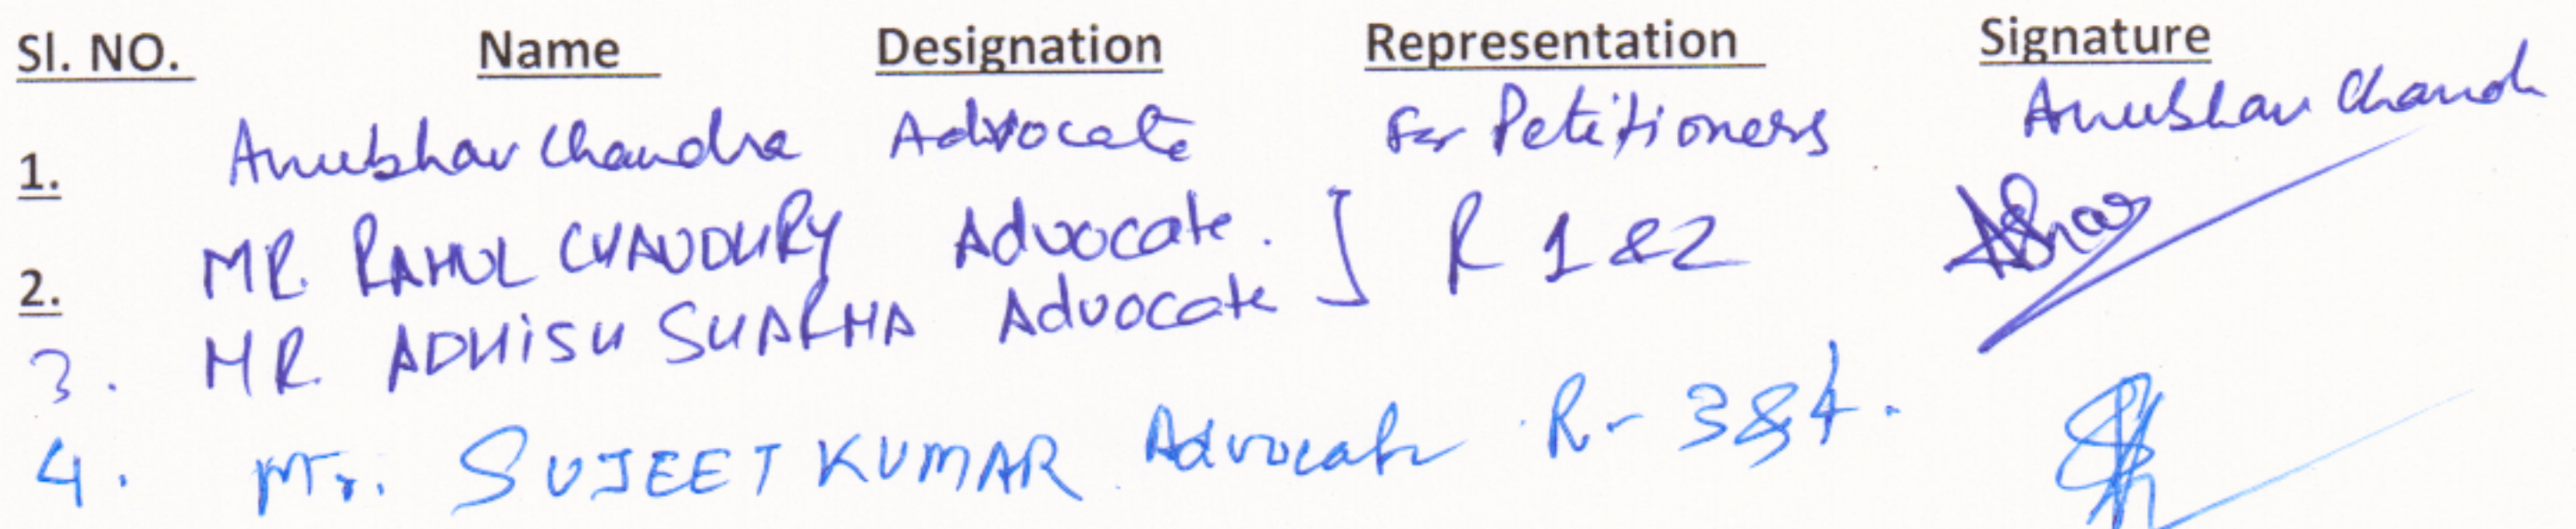 Sl. NO. Name Designation Representation Signature
1. Anubhav Chandra Advocate For Petitioners Anubhav Chand
2. MR. RAHUL CHAUDHURY Advocate. ] R 1 & 2
3. MR. ADHISH SHARMA Advocate
4. Mr. SUJEET KUMAR Advocate R- 3 & 4.